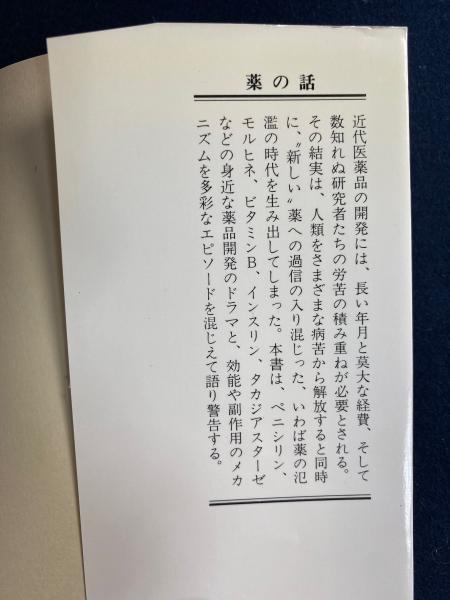 薬の話
近代医薬品の開発には、長い年月と莫大な経費、そして
数知れぬ研究者たちの労苦の積み重ねが必要とされる。
その結実は、人類をさまざまな病苦から解放すると同時
に、〝新しい〟薬への過信の入り混じった、いわば薬の氾
濫の時代を生み出してしまった。本書は、ペニシリン、
モルヒネ、ビタミンB、インスリン、タカジアスターゼ
などの身近な薬品開発のドラマと、効能や副作用のメカ
ニズムを多彩なエピソードを混じえて語り警告する。